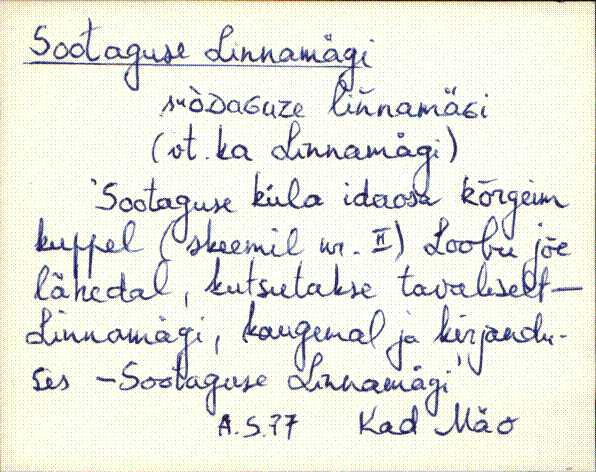 Sootaguse Linnamägi
suòDaGuze liǹnamäGi
(vt. ka Linnamägi)
'Sootaguse küla idaosa kõrgeim
kuppel (skeemil nr. II) Loobu jõe
lähedal, kutsutakse tavaliselt —
Linnamägi, kaugemal ja kirjandu-
ses – Sootaguse Linnamägi'
A.S.77 Kad Mäo